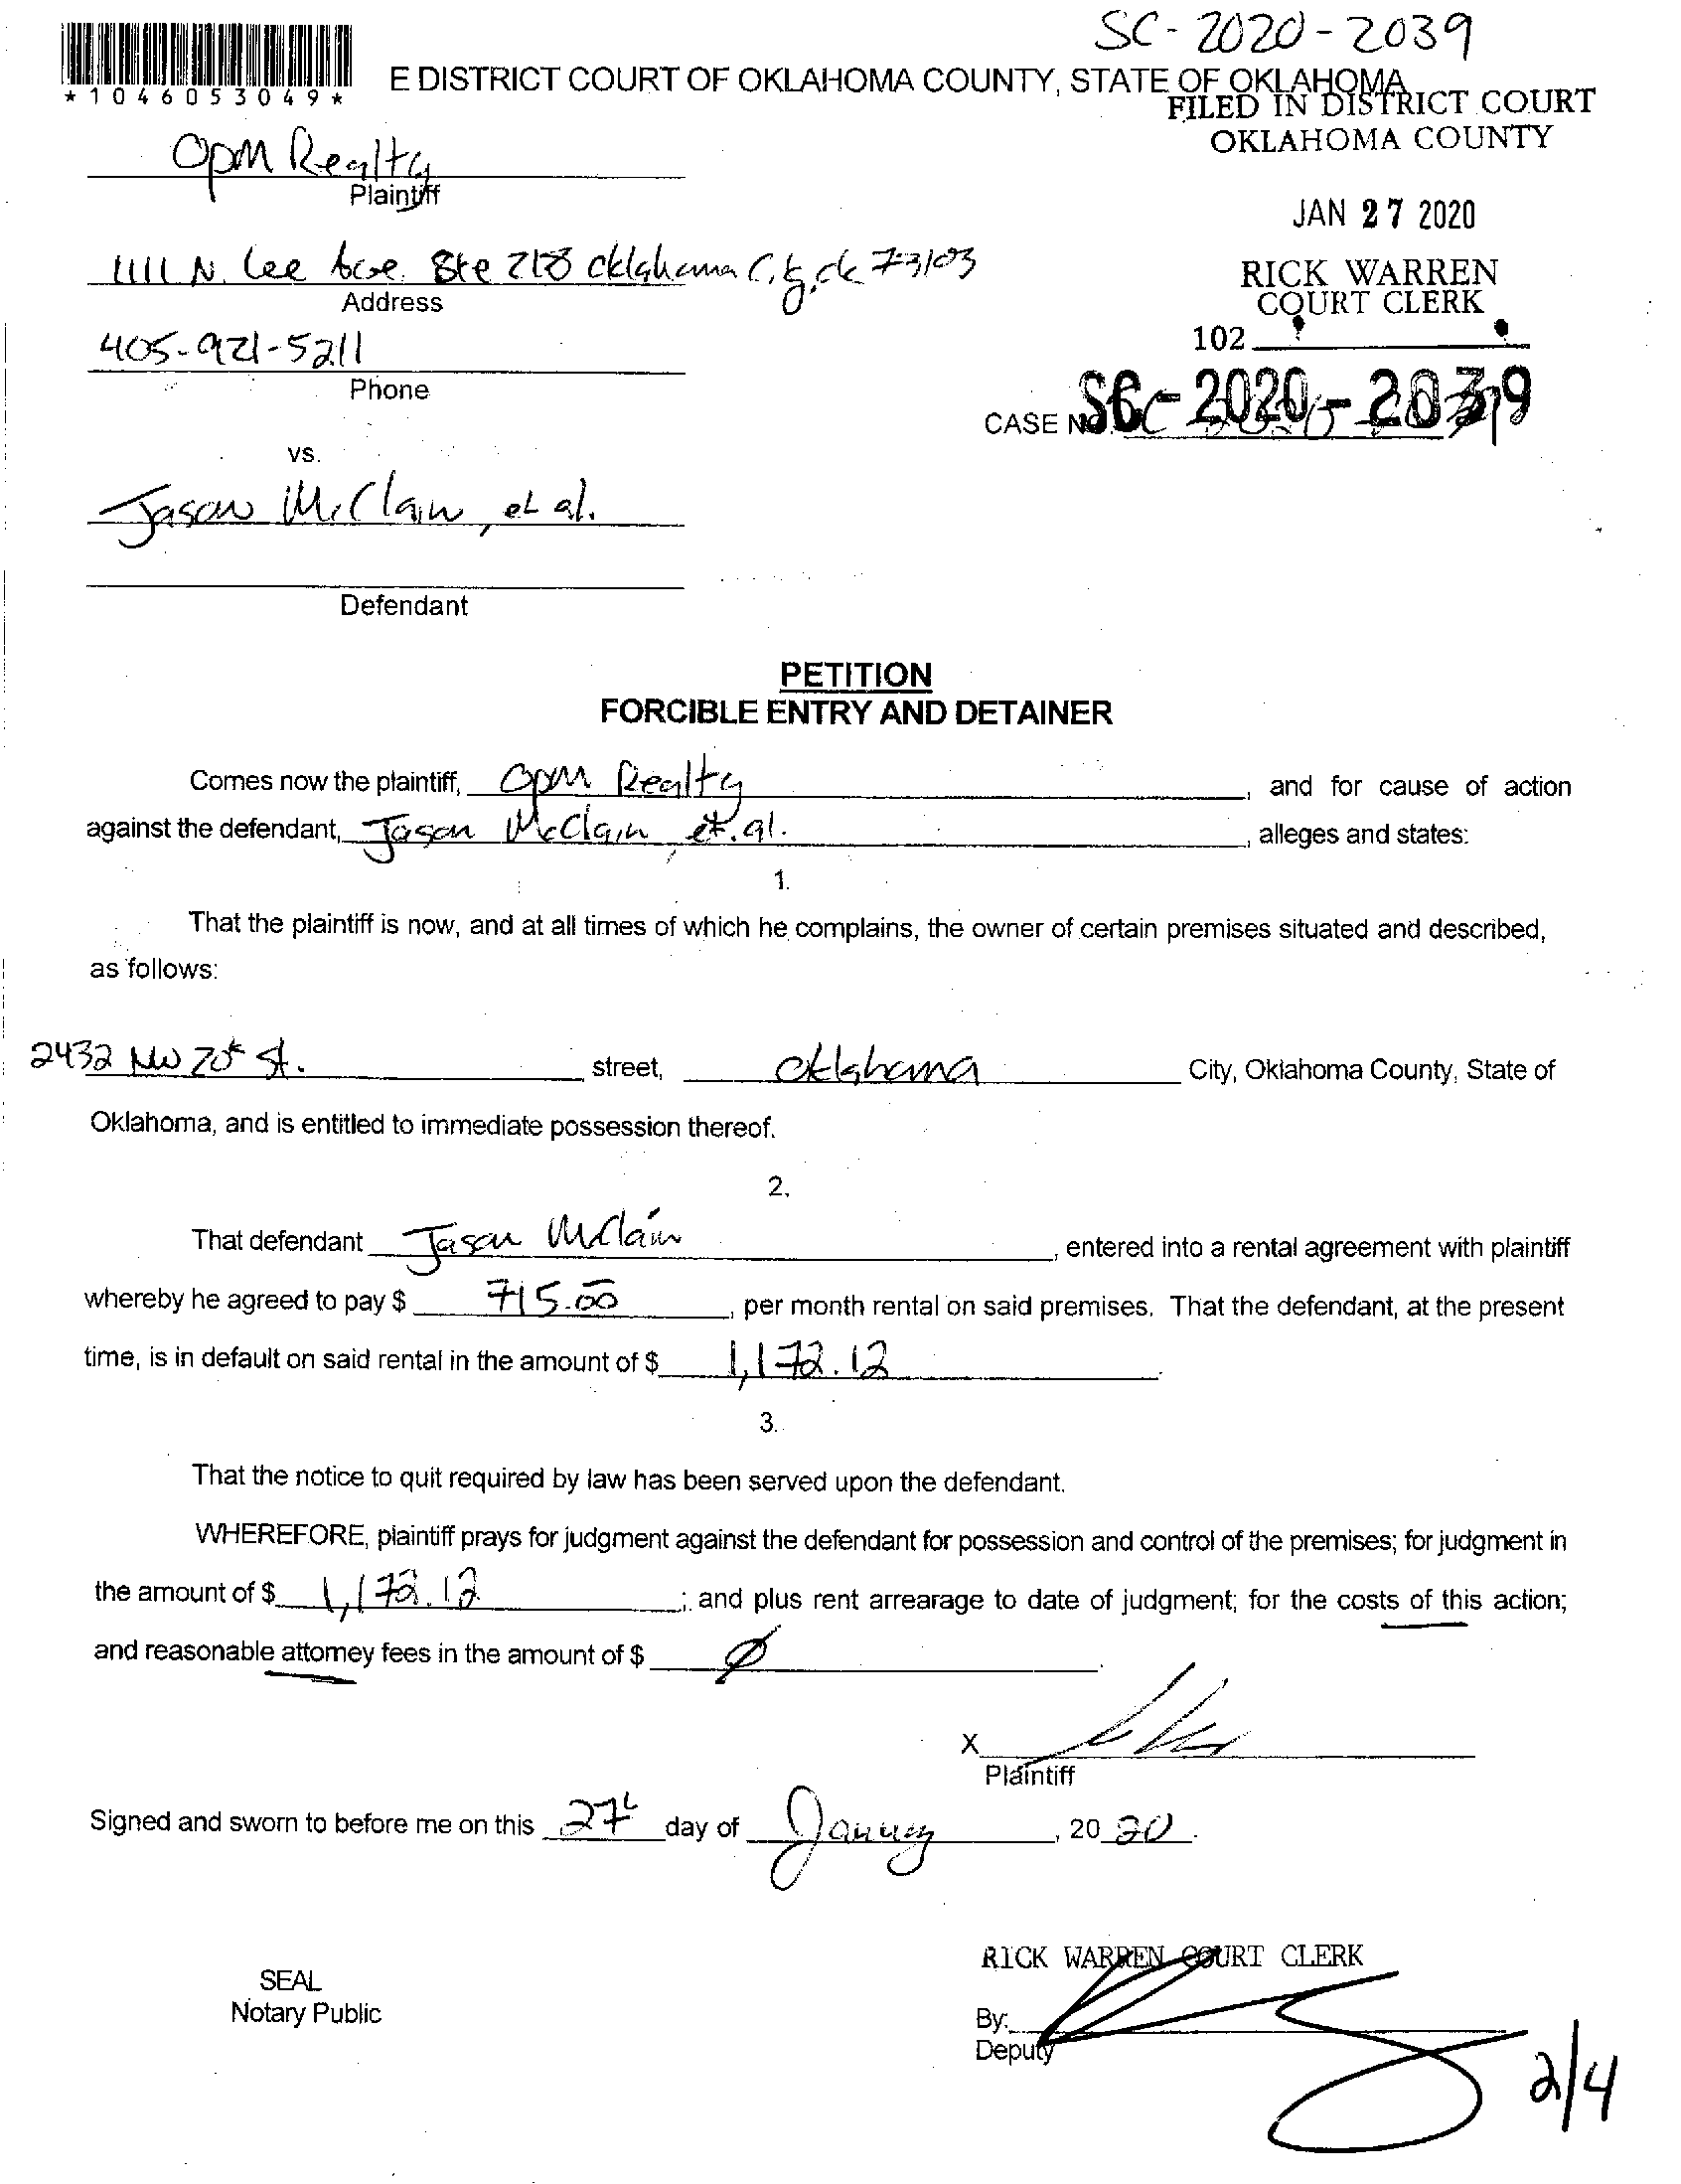 SC-2020-2039
*1046053049*
E DISTRICT COURT OF OKLAHOMA COUNTY, STATE OF OKLAHOMA
FILED IN DISTRICT COURT
OKLAHOMA COUNTY
OPM Realty
Plaintiff
JAN 27 2020
1111 N. Lee Ave. Ste 218 Oklahoma City, ok 73103
Address
RICK WARREN
COURT CLERK
405-921-5211
Phone
102
CASE NO. SC-2020-2039
vs.
Jason McClain, et al.
Defendant
PETITION
FORCIBLE ENTRY AND DETAINER
Comes now the plaintiff, OPM Realty, and for cause of action
against the defendant, Jason McClain, et. al., alleges and states:
1.
That the plaintiff is now, and at all times of which he complains, the owner of certain premises situated and described,
as follows:
2432 NW 20th St. street, Oklahoma City, Oklahoma County, State of
Oklahoma, and is entitled to immediate possession thereof.
2.
That defendant Jason McClain, entered into a rental agreement with plaintiff
whereby he agreed to pay $ 715.00, per month rental on said premises. That the defendant, at the present
time, is in default on said rental in the amount of $ 1,172.12.
3.
That the notice to quit required by law has been served upon the defendant.
WHEREFORE, plaintiff prays for judgment against the defendant for possession and control of the premises; for judgment in
the amount of $ 1,172.12; and plus rent arrearage to date of judgment; for the costs of this action;
and reasonable attorney fees in the amount of $ Ø.
X
Plaintiff
Signed and sworn to before me on this 27th day of January, 2020.
RICK WARREN COURT CLERK
SEAL
Notary Public
By:
Deputy
2/4